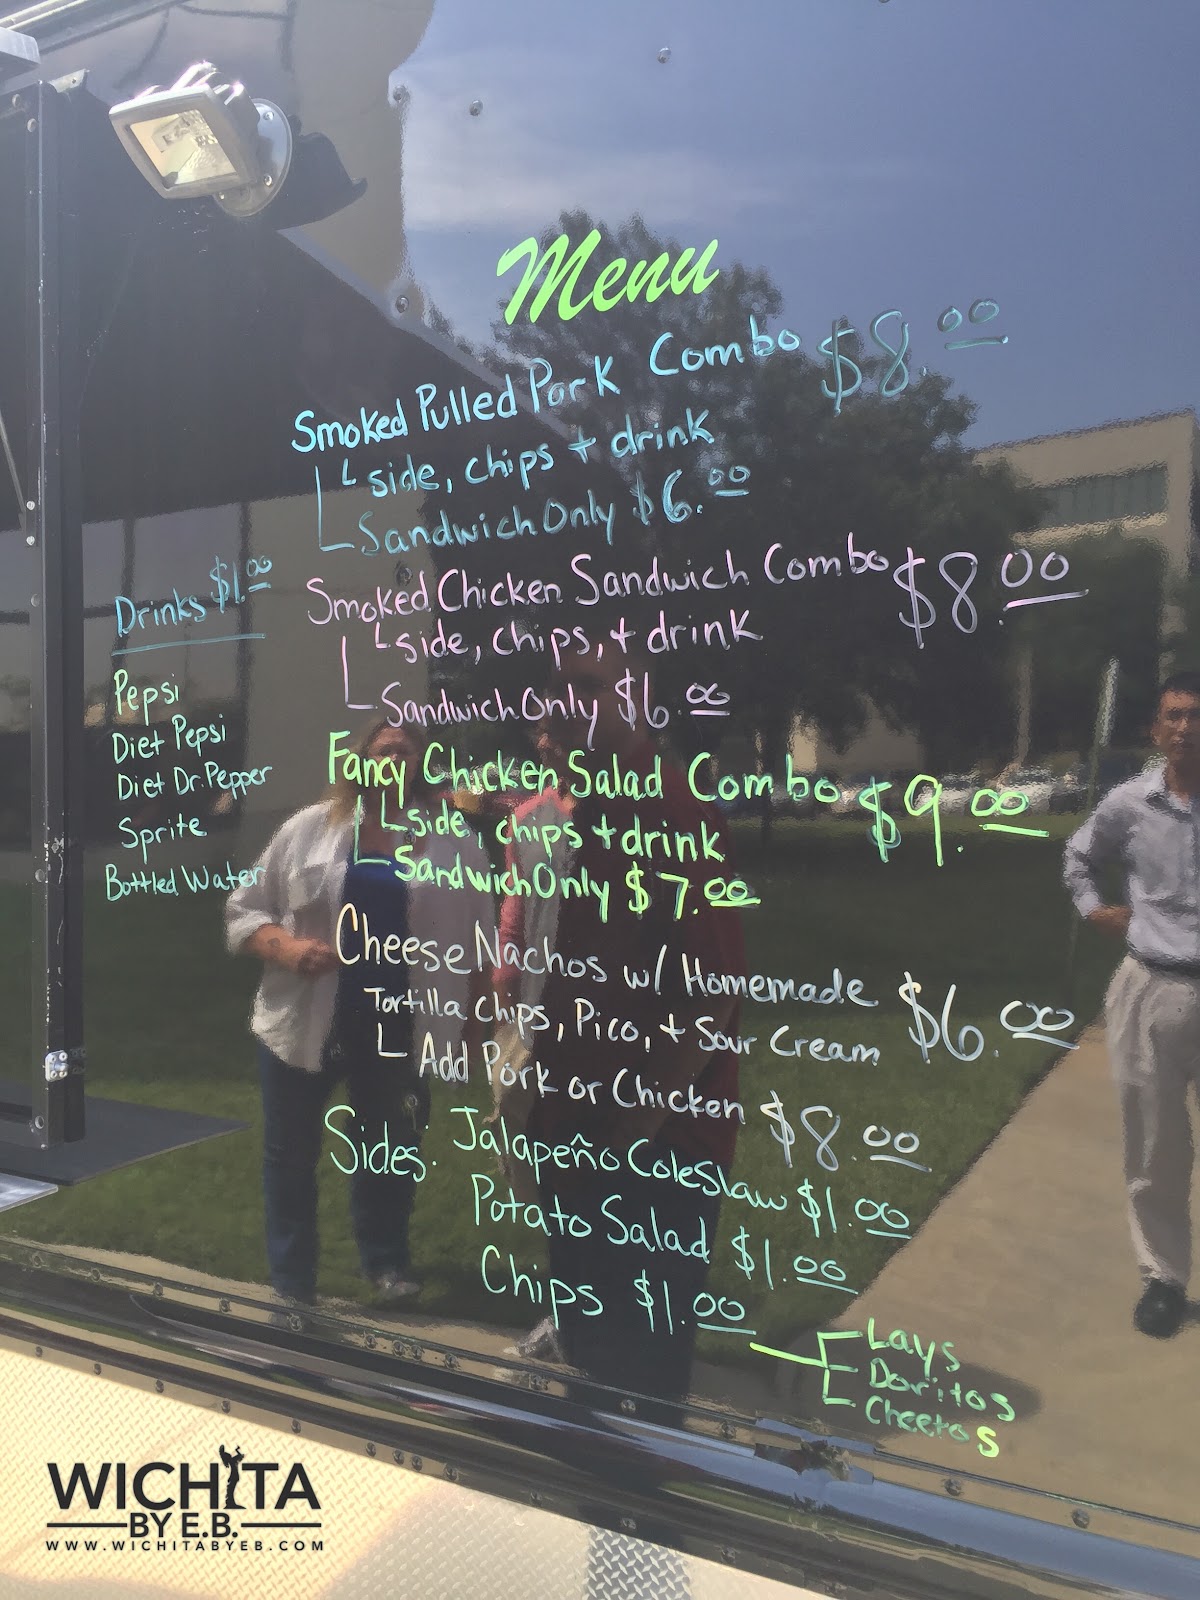 Menu
Smoked Pulled Pork Combo $8.00
side, chips + drink
Sandwich Only $6.00
Smoked Chicken Sandwich Combo $8.00
side, chips, + drink
Sandwich Only $6.00
Fancy Chicken Salad Combo $9.00
side, chips + drink
Sandwich Only $7.00
Cheese Nachos w/ Homemade
Tortilla Chips, Pico, + Sour Cream $6.00
Add Pork or Chicken $8.00
Sides: Jalapeño Coleslaw $1.00
Potato Salad $1.00
Chips $1.00
Lays
Doritos
Cheetos
Drinks $1.00
Pepsi
Diet Pepsi
Diet Dr. Pepper
Sprite
Bottled Water
WICHITA
BY E.B.
WWW.WICHITABYEB.COM